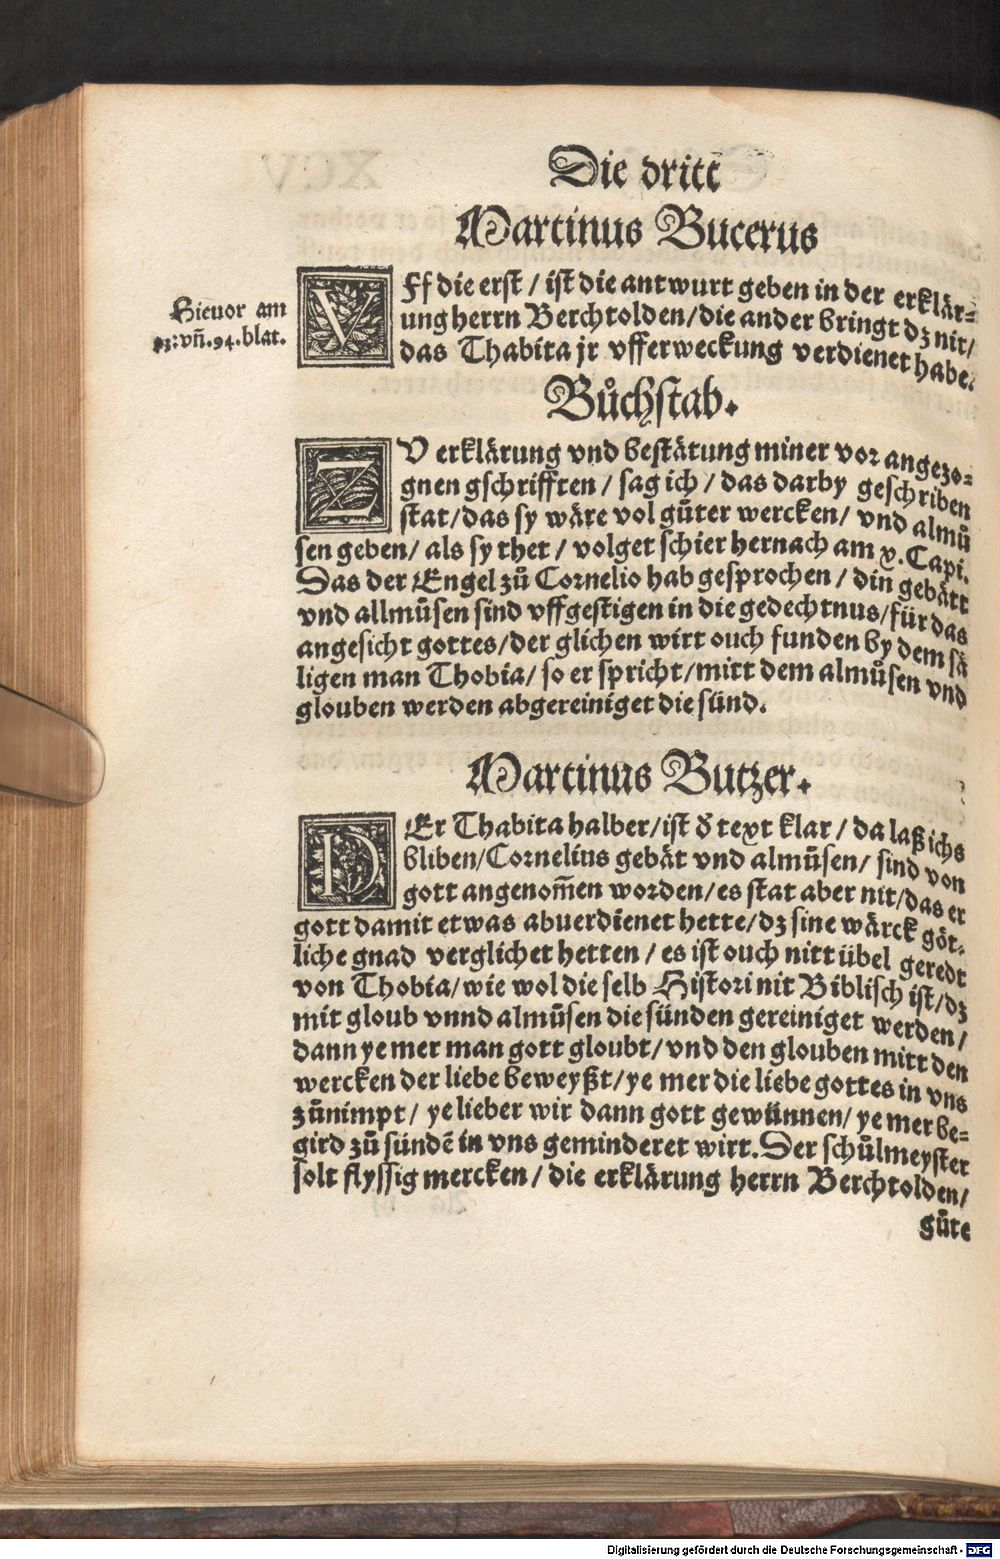 Die dritt
Martinus Bucerus
Hieuor am
93. vñ .94. blat.
VFf die erst / ist die antwurt geben in der erklär⸗
ung herrn Berchtolden / die ander bringt dz nit /
das Thabita jr vfferweckung verdienet habe.
Bůchstab.
ZV erklärung vnd bestätung miner vor angezo⸗
gnen gschrifften / sag ich / das darby geschriben
stat / das sy wäre vol gůter wercken / vnd almů
sen geben / als sy thet / volget schier hernach am x. Capi.
Das der Engel zů Cornelio hab gesprochen / din gebätt
vnd allmůsen sind vffgestigen in die gedechtnus / für das
angesicht gottes / der glichen wirt ouch funden by dem sä
ligen man Thobia / so er spricht / mitt dem almůsen vnd
glouben werden abgereiniget die sünd.
Martinus Butzer.
DEr Thabita halber / ist ð text klar / da laß ichs
bliben / Cornelius gebät vnd almůsen / sind von
gott angenom̄en worden / es stat aber nit / das er
gott damit etwas abuerdienet hette / dz sine wärck göt⸗
liche gnad verglichet hetten / es ist ouch nitt übel geredt
von Thobia / wie wol die selb Histori nit Biblisch ist / dz
mit gloub vnnd almůsen die sünden gereiniget werden /
dann ye mer man gott gloubt / vnd den glouben mitt den
wercken der liebe beweyßt / ye mer die liebe gottes in vns
zůnimpt / ye lieber wir dann gott gewünnen / ye mer be⸗
gird zů sündē in vns geminderet wirt. Der schůlmeyster
solt flyssig mercken / die erklärung herrn Berchtolden /
gůte
Digitalisierung gefördert durch die Deutsche Forschungsgemeinschaft - DFG